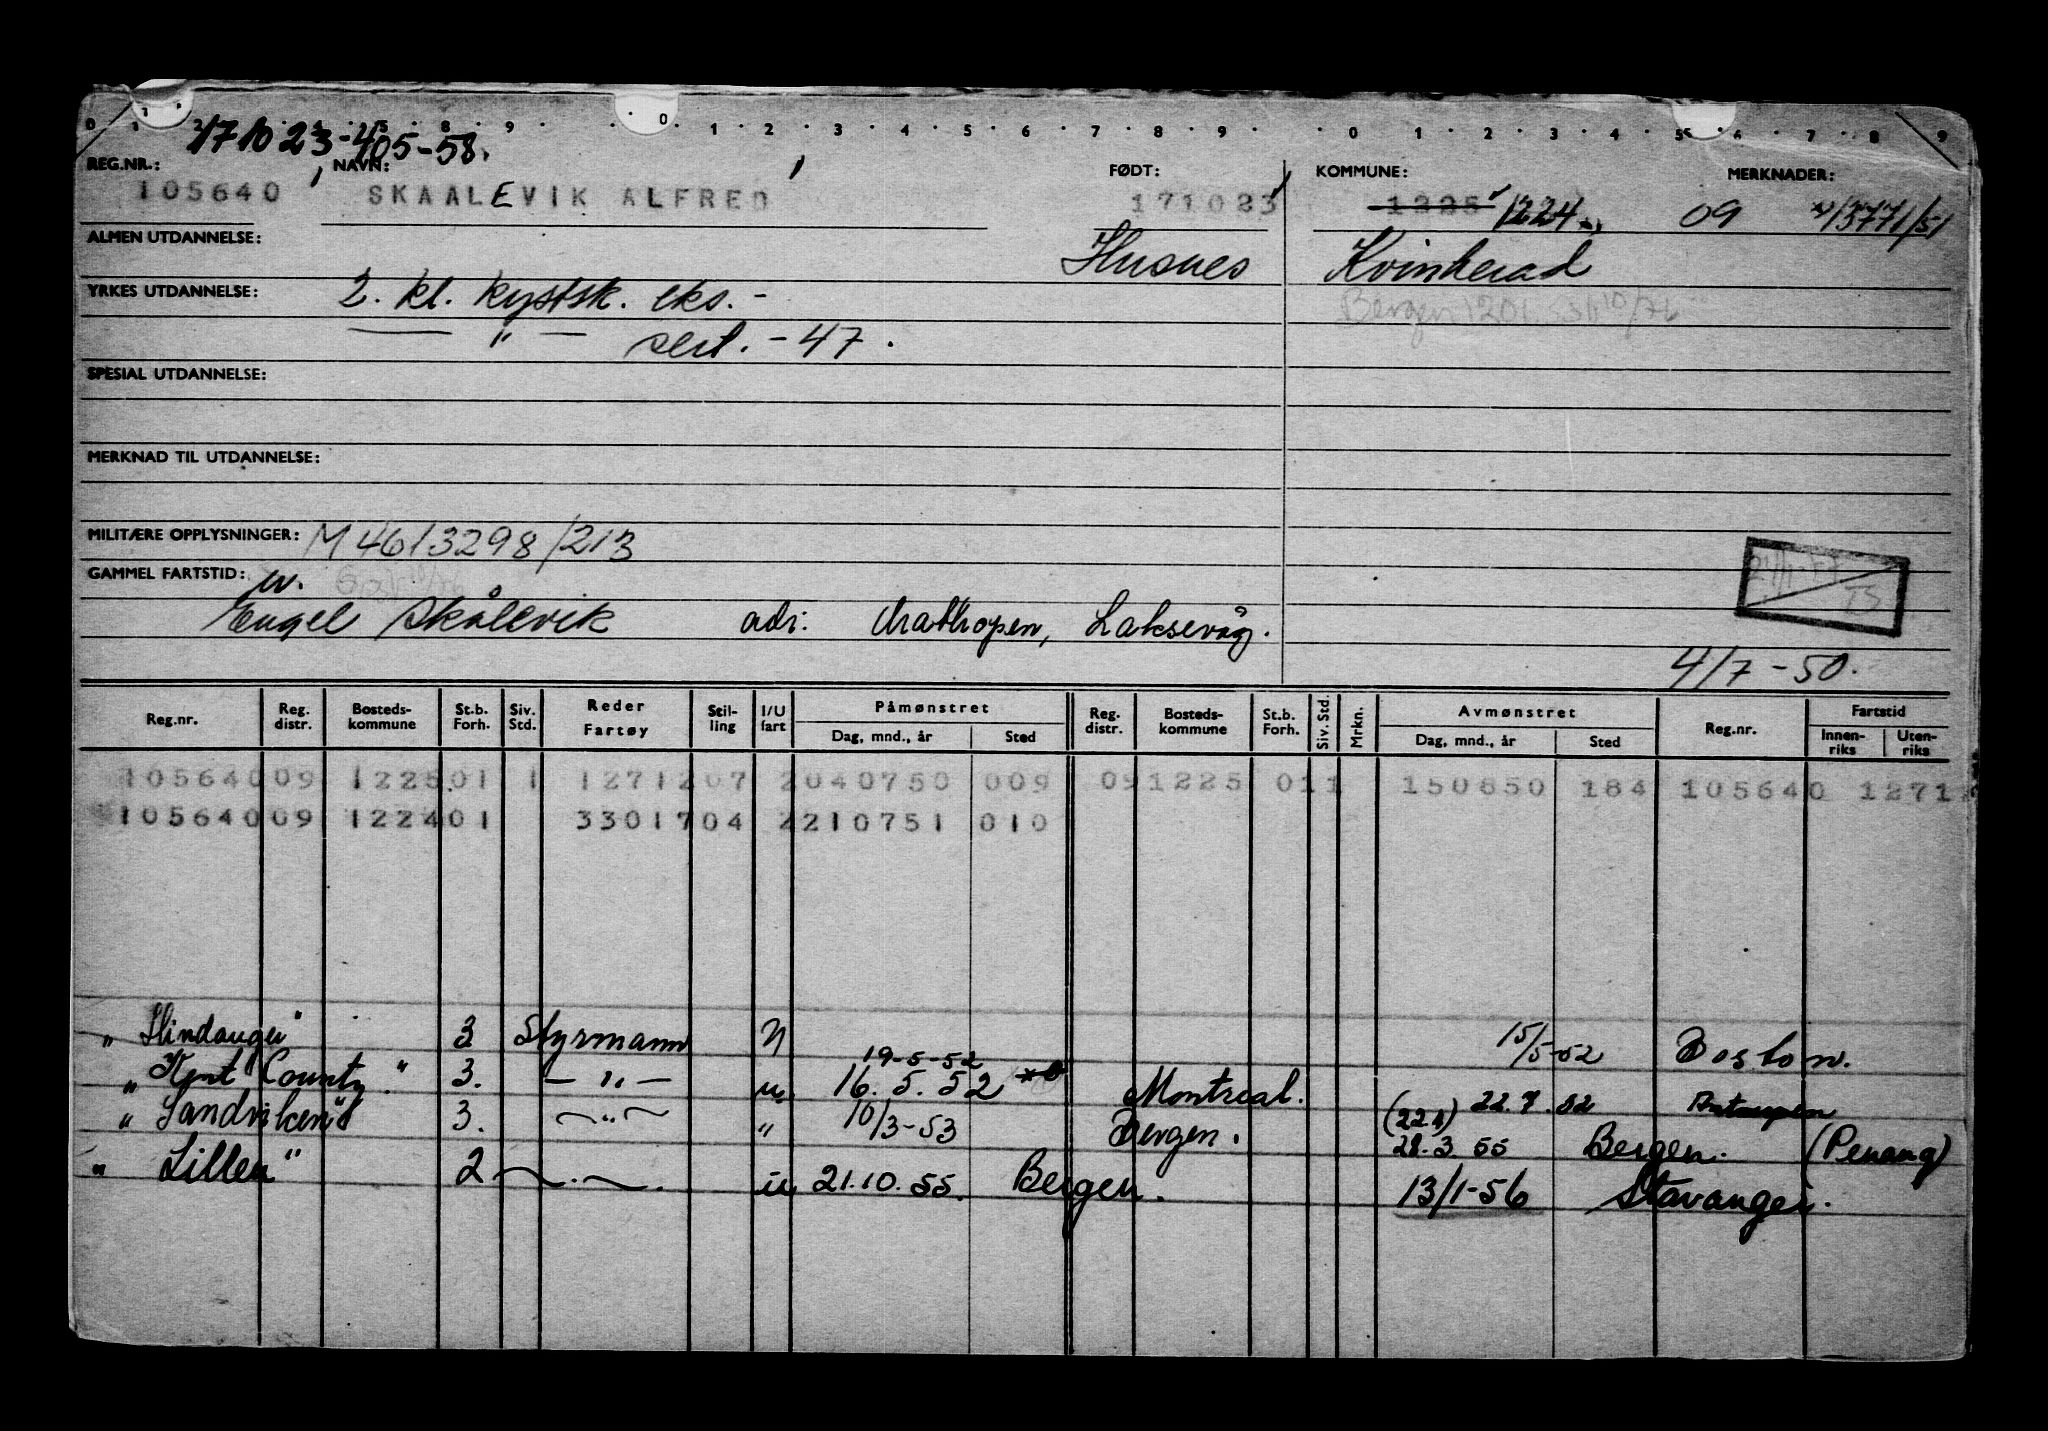 0 1 2 3 4 5 6 7 8 9 0 1 2 3 4 5 6 7 8 9
171023-405-58.
REG.NR.: NAVN: FØDT: KOMMUNE: MERKNADER:
105640 SKAALEVIK ALFRED 171023 1225 1224 09 1377/51
ALMEN UTDANNELSE: Husnes Kvinherad
YRKES UTDANNELSE: 2. kl. kystsk. eks. - Bergen 1201 10/76
— " — sert. - 47.
SPESIAL UTDANNELSE:
MERKNAD TIL UTDANNELSE:
MILITÆRE OPPLYSNINGER: M 4613298/213
GAMMEL FARTSTID:
Engel Skålevik adr: Mathopen, Laksevåg.
4/7 - 50.
Reg.nr. Reg. distr. Bosteds-kommune St.b. Forh. Siv. Std. Reder Fartøy Stil-ling I/U fart Påmønstret Dag, mnd., år Sted Reg. distr. Bosteds-kommune St.b. Forh. Siv. Std. Mrkn. Avmønstret Dag, mnd., år Sted Reg.nr. Fartstid Innen-riks Uten-riks
105640 09 1225 01 1 12712 07 2 040750 009 09 1225 01 1 150850 184 105640 1271
105640 09 1224 01 33017 04 2 210751 010
"Hindanger" 3 Styrmann U 15/5-52 Boston.
"Kent County" 3. — " — u. 19-5-52 16.5.52 Montreal. 22.7.52 Antwerpen
"Sandviken" 3. — " — " 10/3-53 Bergen. (22.1) 28.3.55 Bergen. (Penang)
"Lillen" 2 — . — . u 21.10.55. Bergen. 13/1-56 Stavanger.